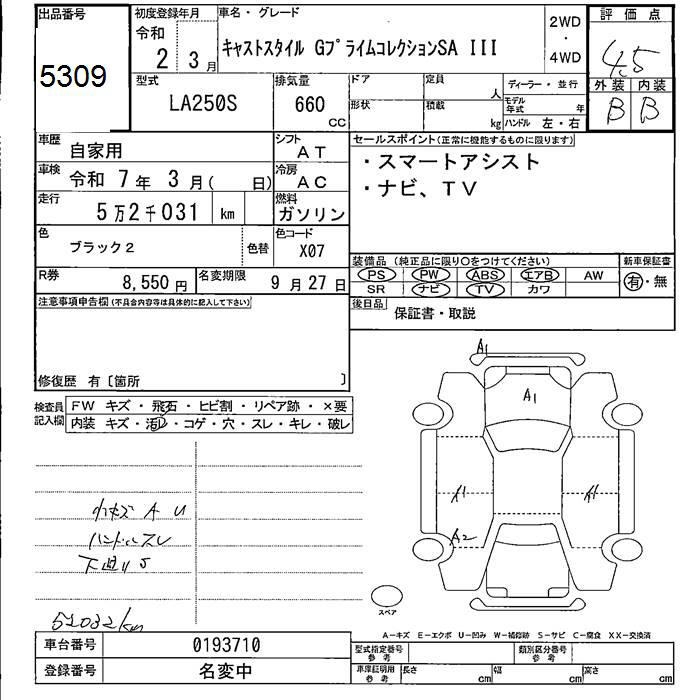 出品番号
5309
初度登録年月
令和
2 3月
車名・グレード
キャストスタイル Gプライムコレクション SA III
2WD
・
4WD
評価点
4.5
外装 内装
B B
型式
LA250S
排気量
660
cc
ドア
形状
定員
人
積載
kg
ディーラー・並行
モデル年式 年
ハンドル 左・右
車歴
自家用
シフト
AT
車検
令和 7年 3月( 日)
冷房
AC
走行
5万2千031 km
燃料
ガソリン
色
ブラック2
色替
色コード
X07
R券
8,550円
名変期限
9月27日
セールスポイント(正常に機能するものに限ります)
・スマートアシスト
・ナビ、TV
装備品 (純正品に限り○をつけてください)
PS PW ABS エアB AW
SR ナビ TV カワ
新車保証書
有・無
後日品
保証書・取説
注意事項申告欄(不具合内容等は具体的に記入して下さい)
修復歴 有〔箇所 〕
検査員記入欄
FW キズ・飛石・ヒビ割・リペア跡・×要
内装 キズ・汚レ・コゲ・穴・スレ・キレ・破レ
小キズ A U
ハンドルスレ
下廻りS
52032km
A1
A1
A1
A1
A2
スペア
A-キズ E-エクボ U-凹み W-補修跡 S-サビ C-腐食 XX-交換済
車台番号
0193710
登録番号
名変中
型式指定番号
参考
類別区分番号
参考
車庫証明用
参考
長さ cm
幅 cm
高さ cm